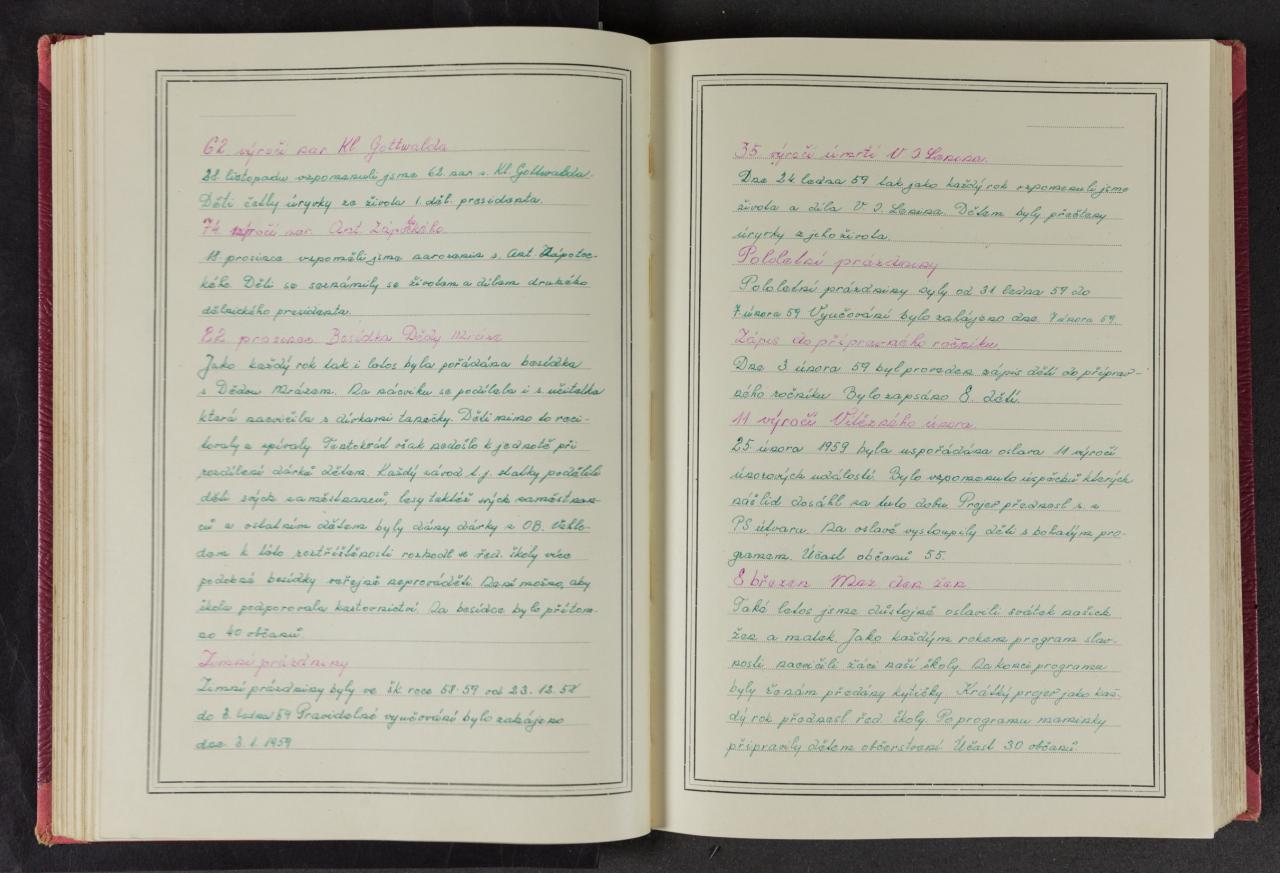 62 výročí nar. Kl Gottwalda
28 listopadu vzpomenuli jsme 62. nar s. Kl. Gottwalda.
Děti četly úryvky ze života 1. děl. presidenta.
74 výročí nar. Ant Zápotockého
18. prosince vzpoměli jsme narozenin s. Ant. Zápotoc-
kého. Děti se seznámily se životem a dílem druhého
dělnického presidenta.
22 prosince Besídka Dědy Mráze
Jako každý rok tak i letos byla pořádána besídka
s Dědou Mrázem. Na nácviku se podílela i s. učitelka
která nacvičila s dívkami tanečky. Děti mimo to reci-
tovaly a zpívaly. Tentokrád však nedošlo k jednotě při
rozdílení dárků dětem. Každý závod t. j. statky podělili
děti svých zaměstnanců, lesy taktéž svých zaměstnan-
ců a ostatním dětem byly dány dárky z OB. Vzhle-
dem k této roztříštěnosti rozhodl se řed. školy více
podobné besídky veřejně neprováděti. Není možno, aby
škola podporovala kastovnictví. Na besídce bylo přítom-
no 40 občanů.
Zimní prázdniny
Zimní prázdniny byly ve šk. roce 58-59 od 23. 12. 58
do 2. ledna 59 Pravidelné vyučování bylo zahájeno
dne 3. 1. 1959
35 výročí úmrtí V I Lenina.
Dne 24 ledna 59 tak jako každý rok vzpomenuli jsme
života a díla V. I. Lenina. Dětem byly přečteny
úryvky z jeho života.
Pololetní prázdniny
Pololetní prázdniny byly od 31 ledna 59 do
7 února 59 Vyučování bylo zahájeno dne 7 února 59.
Zápis do přípravného ročníku.
Dne 3 února 59 byl proveden zápis dětí do příprav-
ného ročníku. Bylo zapsáno 8. dětí.
11 výročí Vítězného února.
25 února 1959 byla uspořádána oslava 11 výročí
únorových událostí. Bylo vzpomenuto úspěchů kterých
náš lid dosáhl za tuto dobu. Projev přednesl s. z
PS útvaru. Na oslavě vystoupily děti s bohatým pro-
gramem. Účast občanů 55.
8 březen Mez. den žen
Také letos jsme důstojně oslavili svátek našich
žen a matek. Jako každým rokem program slav-
nosti nacvičili žáci naší školy. Na konci programu
byly ženám předány kytičky. Krátký projev jako kaž-
dý rok přednesl řed. školy. Po programu maminky
připravily dětem občerstvení. Účast 30 občanů